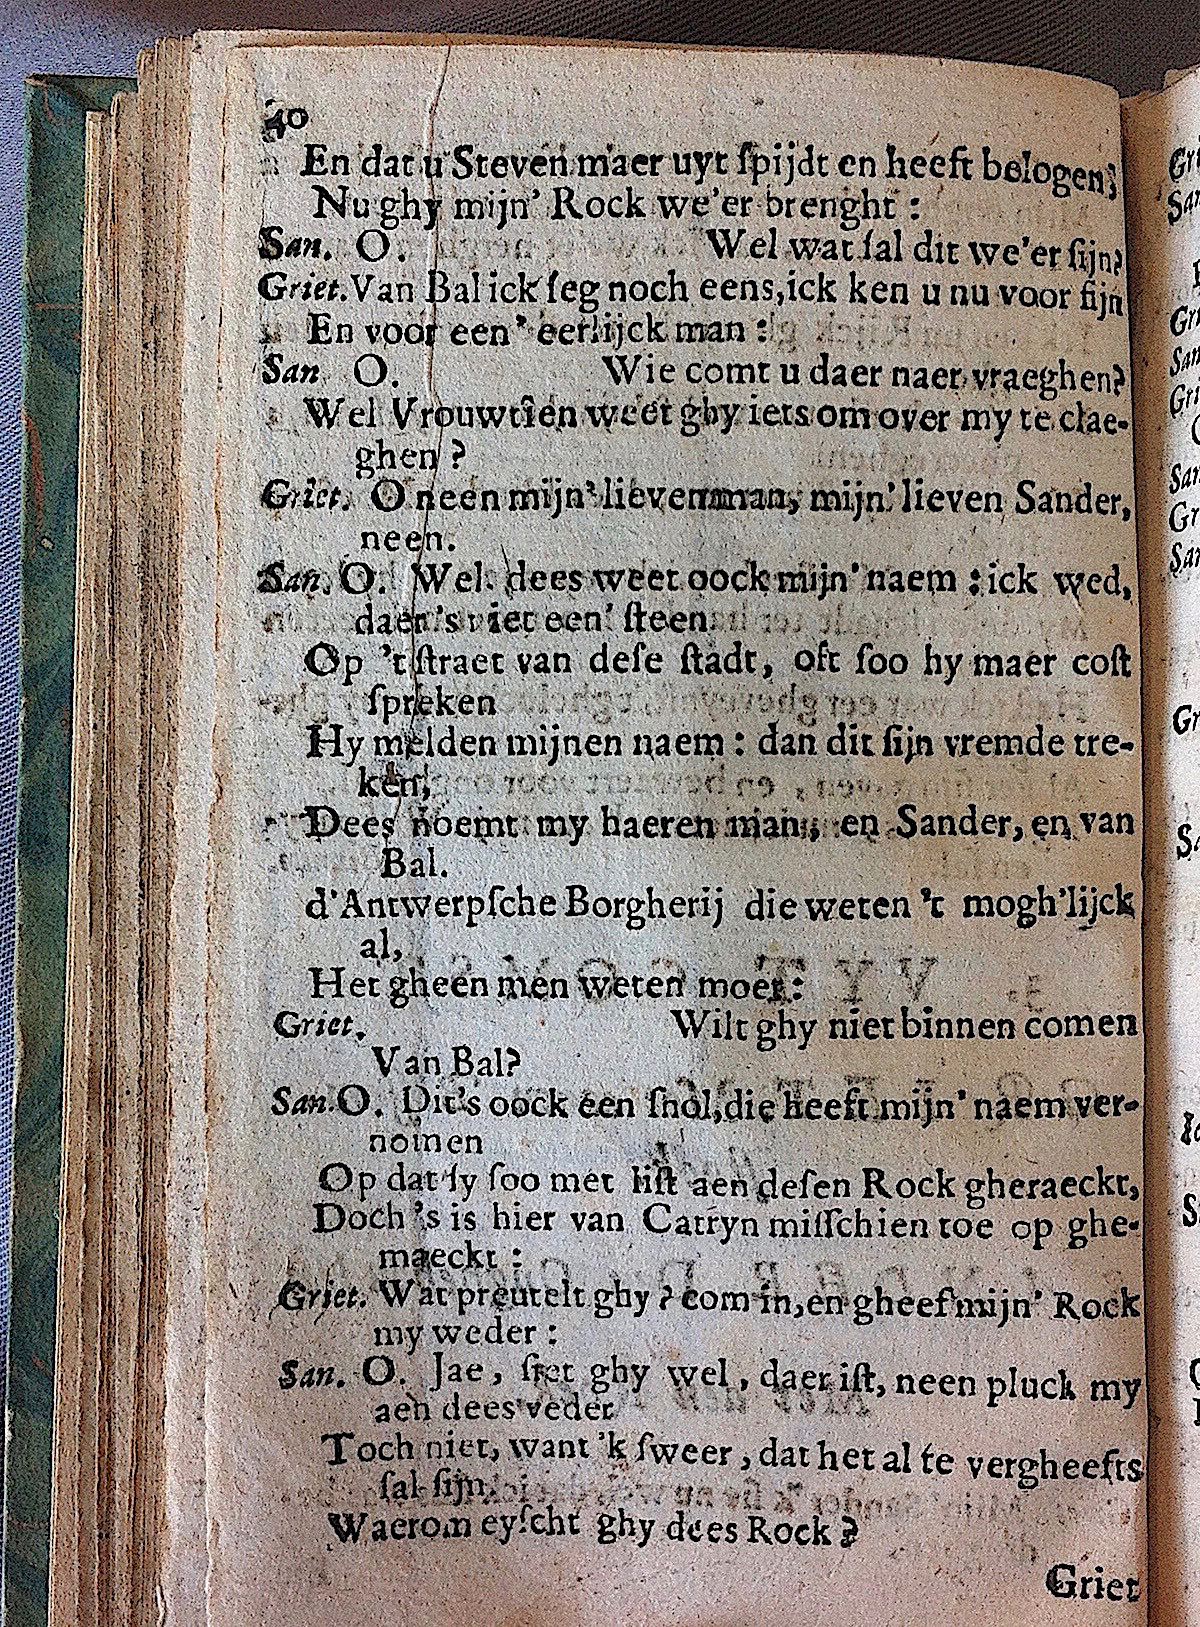 40
En dat u Steven maer uyt ſpijdt en heeft belogen;
Nu ghy mijn' Rock we'er brenght :
San. O. Wel wat ſal dit we'er ſijn?
Griet. Van Bal ick ſeg noch eens, ick ken u nu voor fijn
En voor een' eerlijck man :
San O. Wie comt u daer naer vraeghen?
Wel Vrouwtien weet ghy iets om over my te clae-
ghen ?
Griet. O neen mijn' lieven man, mijn' lieven Sander,
neen.
San. O. Wel dees weet oock mijn' naem : ick wed,
daer's niet een' ſteen
Op 't ſtraet van deſe ſtadt, oft ſoo hy maer coſt
ſpreken
Hy melden mijnen naem : dan dit ſijn vremde tre-
ken,
Dees noemt my haeren man, en Sander, en van
Bal.
d'Antwerpſche Borgherij die weten 't mogh'lijck
al,
Het gheen men weten moet :
Griet. Wilt ghy niet binnen comen
Van Bal?
San. O. Dit's oock een ſnol, die heeft mijn' naem ver-
nomen
Op dat ſy ſoo met liſt aen deſen Rock gheraeckt,
Doch 's is hier van Catryn miſſchien toe op ghe-
maeckt :
Griet. Wat preutelt ghy ? com in, en gheef mijn' Rock
my weder :
San. O. Jae, ſiet ghy wel, daer iſt, neen pluck my
aen dees veder
Toch niet, want 'k ſweer, dat het al te vergheefts
ſal ſijn.
Waerom eyſcht ghy dees Rock ?
Griet